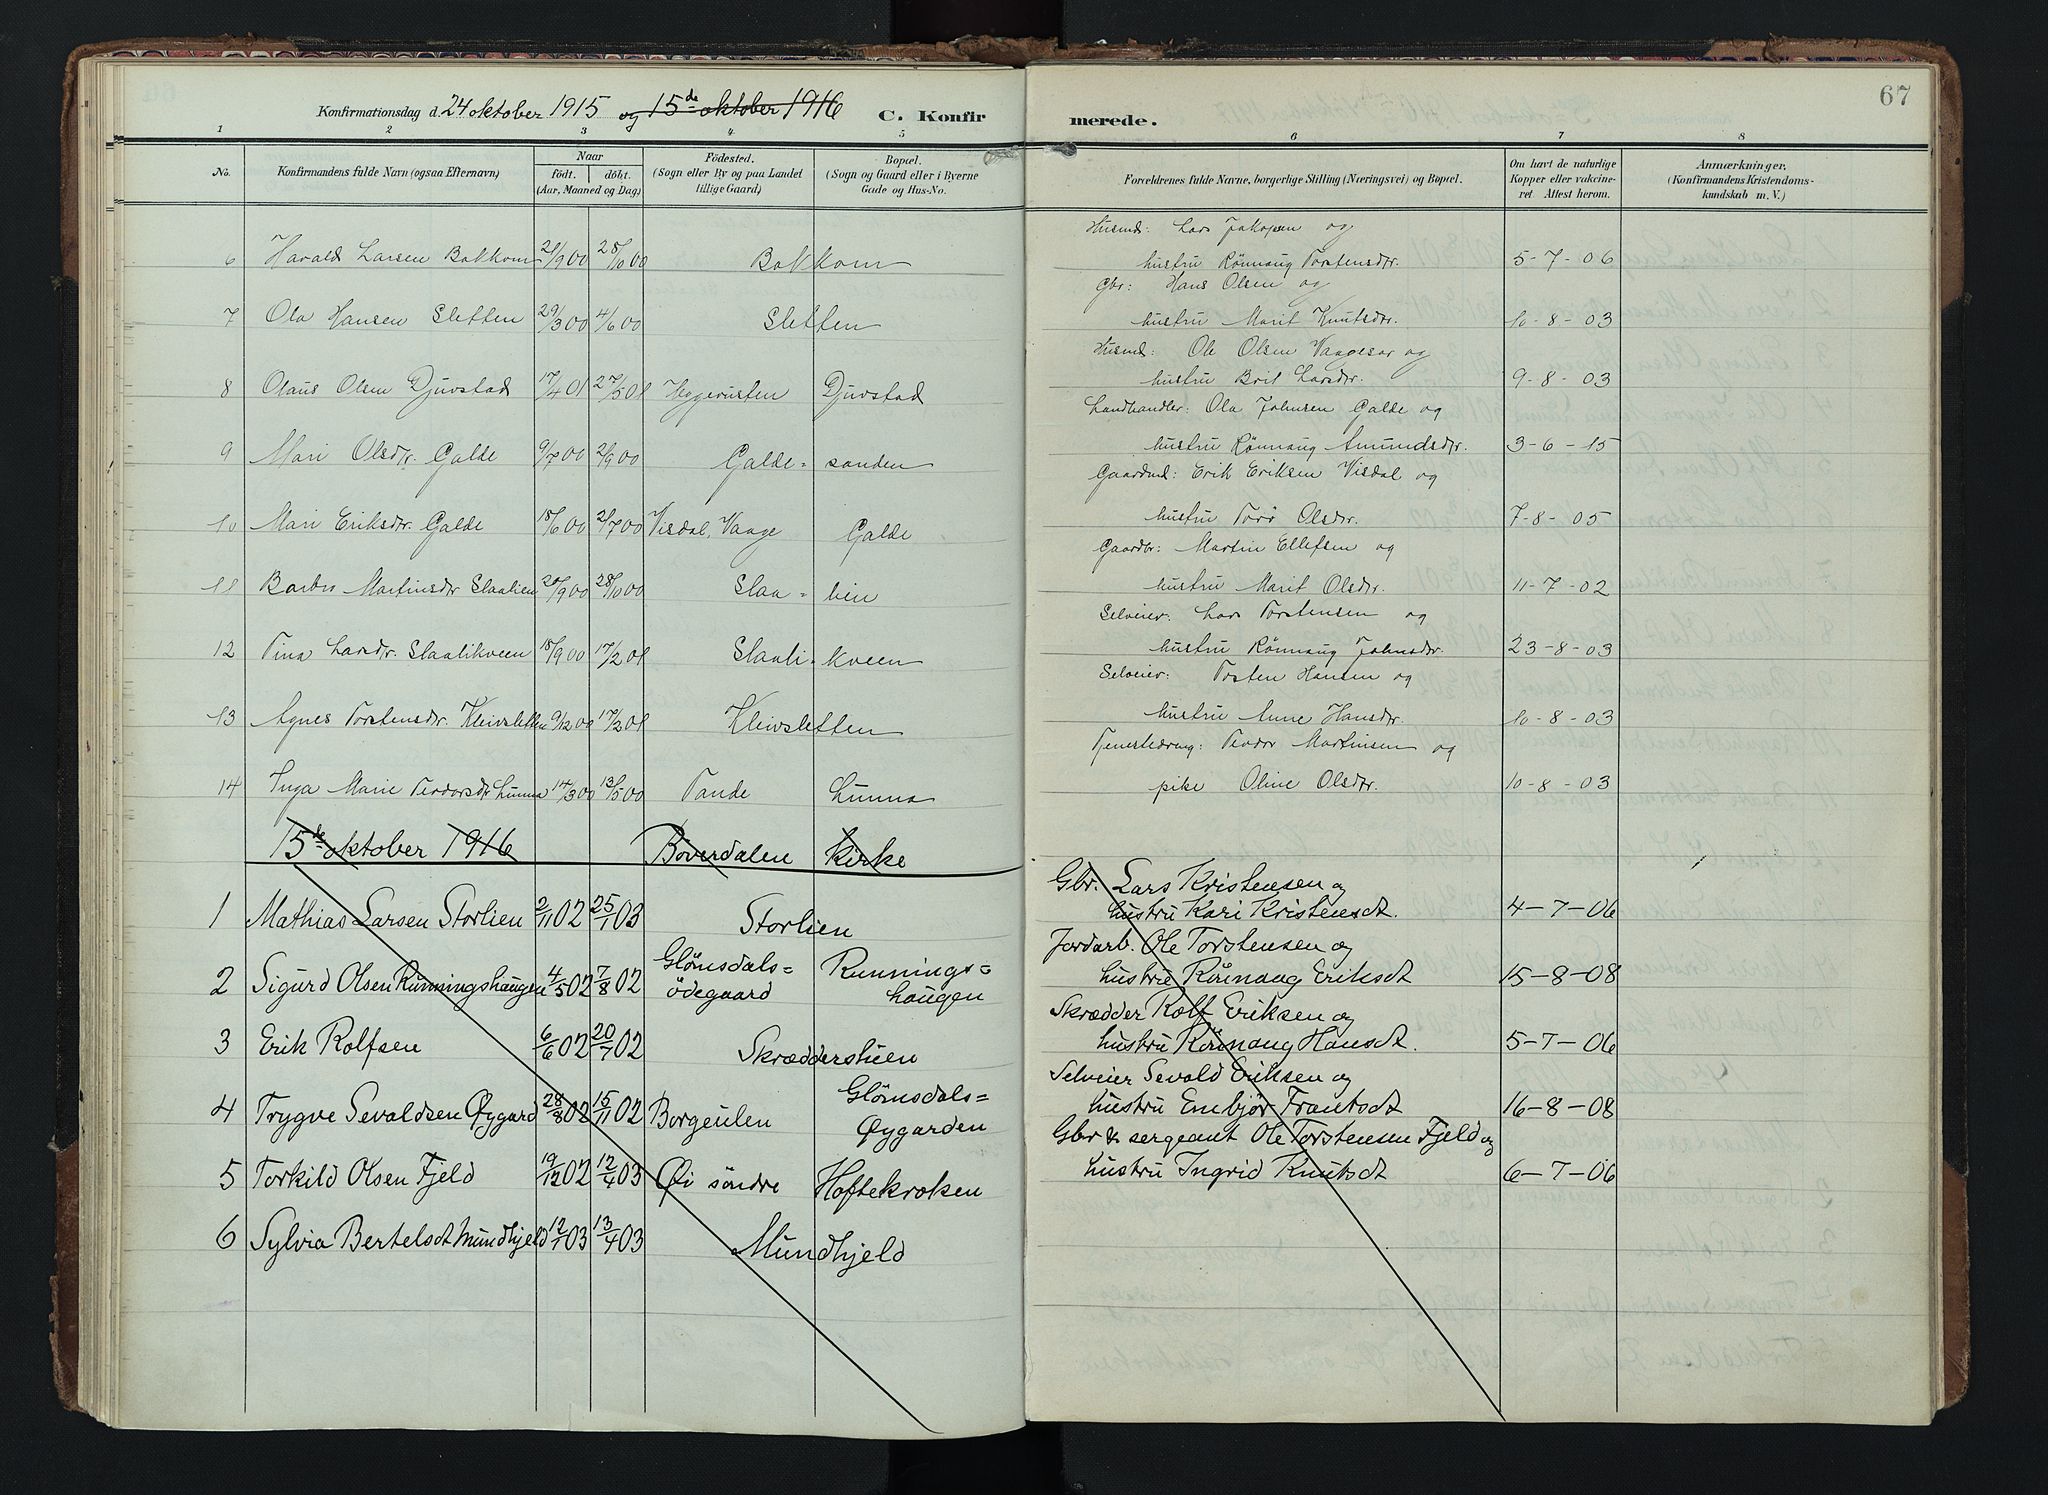 67
Konfirmationsdag d. 24 oktober 1915 og 15de oktober 1916 C. Konfirmerede.
1 2 3 4 5 6 7 8
No. Konfirmandens fulde Navn (ogsaa Efternavn) Naar født. døbt. (Aar, Maaned og Dag.) Fødested. (Sogn eller By og paa Landet tillige Gaard) Bopæl. (Sogn og Gaard eller i Byerne Gade og Hus-No. Forældrenes fulde Navne, borgerlige Stilling (Næringsvei) og Bopæl. Om havt de naturlige Kopper eller vakcineret. Attest herom. Anmærkninger, (Konfirmandens Kristendomskundskab m. V.)
Husmd: Lars Jakopsen og
6 Harald Larsen Bakkom 21/9 00 28/10 00 Bakkom hustru Rønnaug Torstensdr. 5-7-06
Gbr: Hans Olsen og
7 Ola Hansen Sletten 29/3 00 4/6 00 Sletten hustru Marit Knutsdr. 10-8-03
Husmd: Ole Olsen Vaagesar og
8 Olaus Olsen Djuvstad 17/4 01 27/5 01 Heggerusten Djuvstad hustru Brit Larsdr. 9-8-03
Landhandler: Ola Johnsen Galde og
9 Mari Olsdr. Galde 9/7 00 2/9 00 Galde=sanden hustru Rønnaug Amundsdr. 3-6-15
Gaardmd: Erik Eriksen Visdal og
10 Mari Eriksdr. Galde 18/6 00 21/7 00 Visdal, Vaage Galde hustru Torø Olsdr. 7-8-05
Gaardbr: Martin Ellefsen og
11 Barbro Martinsdr Slaalien 20/9 00 28/10 00 Slaa=lien hustru Marit Olsdr. 11-7-02
Selveier: Lars Torstensen og
12 Tina Larsdr. Slaalikveen 18/9 00 17/2 01 Slaali-kveen hustru Rønnaug Johnsdr. 23-8-03
Selveier: Torsten Hansen og
13 Agnes Torstensdr. Kleivsletten 9/12 00 17/2 01 Kleivsletten hustru Anne Hansdr. 10-8-03
Tjenestedreng: Teodor Martinsen og
14 Inga Marie Teodorsdr Lunna 14/3 00 13/5 00 Tande Lunna pike Oline Olsdr. 10-8-03
15de oktober 1916 Bøverdalen Kirke
Gbr. Lars Kristensen og
1 Mathias Larsen Storlien 2/11 02 25/1 03 Storlien hustru Kari Kristensdt. 4-7-06
Jordarb. Ole Torstensen og
2 Sigurd Olsen Runningshaugen 4/5 02 7/8 02 Glömsdals=ödegaard Runnings=haugen hustru Rönnaug Eriksdt 15-8-08
Skrædder Rolf Eriksen og
3 Erik Rolfsen 6/6 02 20/7 02 Skrædderstuen hustru Rönnaug Hansdt. 5-7-06
Selveier Sevald Eriksen og
4 Trygve Sevaldsen Øygard 28/8 02 15/11 02 Borgeulen Glömsdals=Øygarden hustru Embjør Frantsdt 16-8-08
Gbr & sergeant Ole Torstensen Fjeld og
5 Torkild Olsen Fjeld 19/12 02 12/4 03 Øi söndre Hoftekroken hustru Ingrid Knutsdt 6-7-06
6 Sylvia Bertelsdt Mundhjeld 12/1 03 13/4 03 Mundhjeld